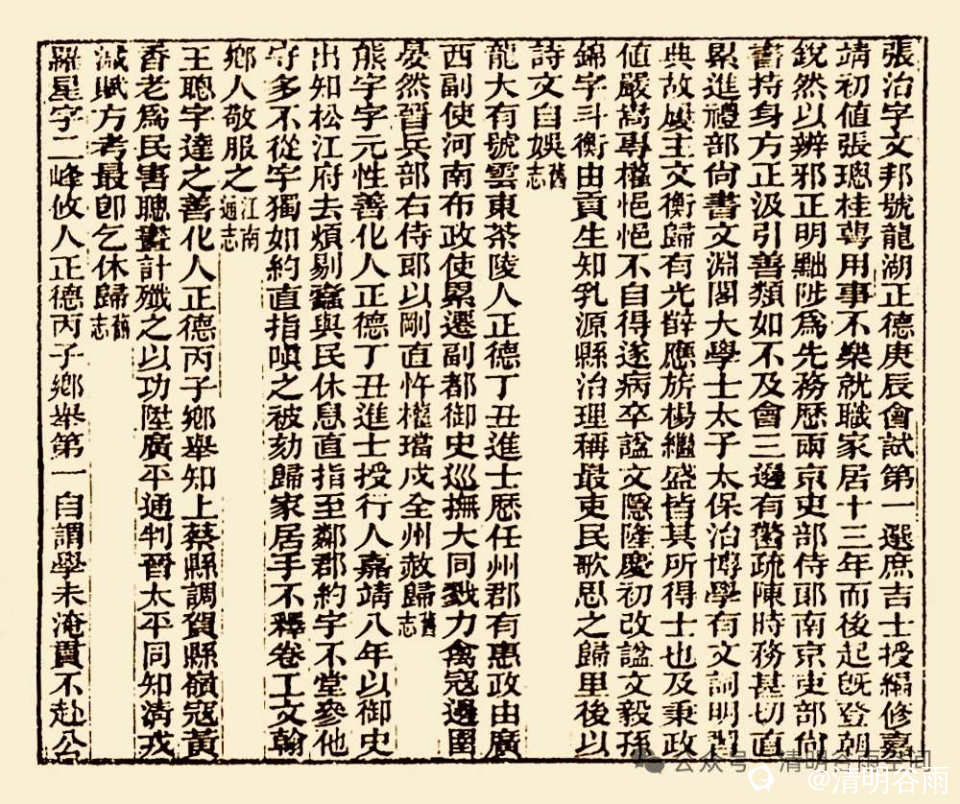 張治字文邦號龍湖正德庚辰會試第一選庶吉士授編修嘉
靖初値張璁桂萼用事不樂就職家居十三年而後起旣登朝
銳然以辨邪正明黜陟爲先務歷兩京吏部侍郎南京吏部尙
書持身方正汲引善類如不及會三邊有警疏陳時務甚切直
累進禮部尙書文淵閣大學士太子太保治博學有文詞明習
典故嫂主文衡歸有光薛應旂楊繼盛皆其所得士也及秉政
値嚴嵩專權悒悒不自得遂病卒諡文隱隆慶初改諡文毅孫
錦字斗衡由貢生知乳源縣治理稱最吏民歌思之歸里後以
詩文自娛舊志
龍大有號雲東茶陵人正德丁丑進士歷任州郡有惠政由廣
西副使河南布政使累遷副都御史巡撫大同戮力禽寇邊圉
晏然晉兵部右侍郎以剛直忤權璫戍全州赦歸舊志
熊字字元性善化人正德丁丑進士授行人嘉靖八年以御史
出知松江府去煩剔蠹與民休息直指至鄰郡約字不堂參他
守多不從字獨如約直指嗔之被劾歸家居手不釋卷工文翰
鄉人敬服之江南通志
王聰字達之善化人正德丙子鄉舉知上蔡縣調賀縣嶺寇黃
香老爲民害聰畫計殲之以功陞廣平通判晉太平同知淸戎
減賦方考最卽乞休歸舊志
羅星字二峰攸人正德丙子鄉舉第一自謂學未淹貫不赴公
公众号·清明谷雨空间
@清明谷雨